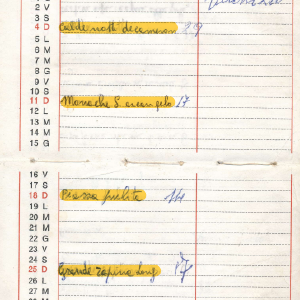 2 V
3 S
4 D Calde notti decameron 29
5 L
6 M
7 M
8 G
9 V
10 S
11 D Monache S. arcangelo 17
12 L
13 M
14 M
15 G
16 V
17 S
18 D 14
19 L
20 M
21 M
22 G
23 V
24 S
25 D Grande rapina Long
26 L
27 M